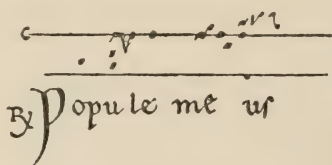 ℟ Popule me us